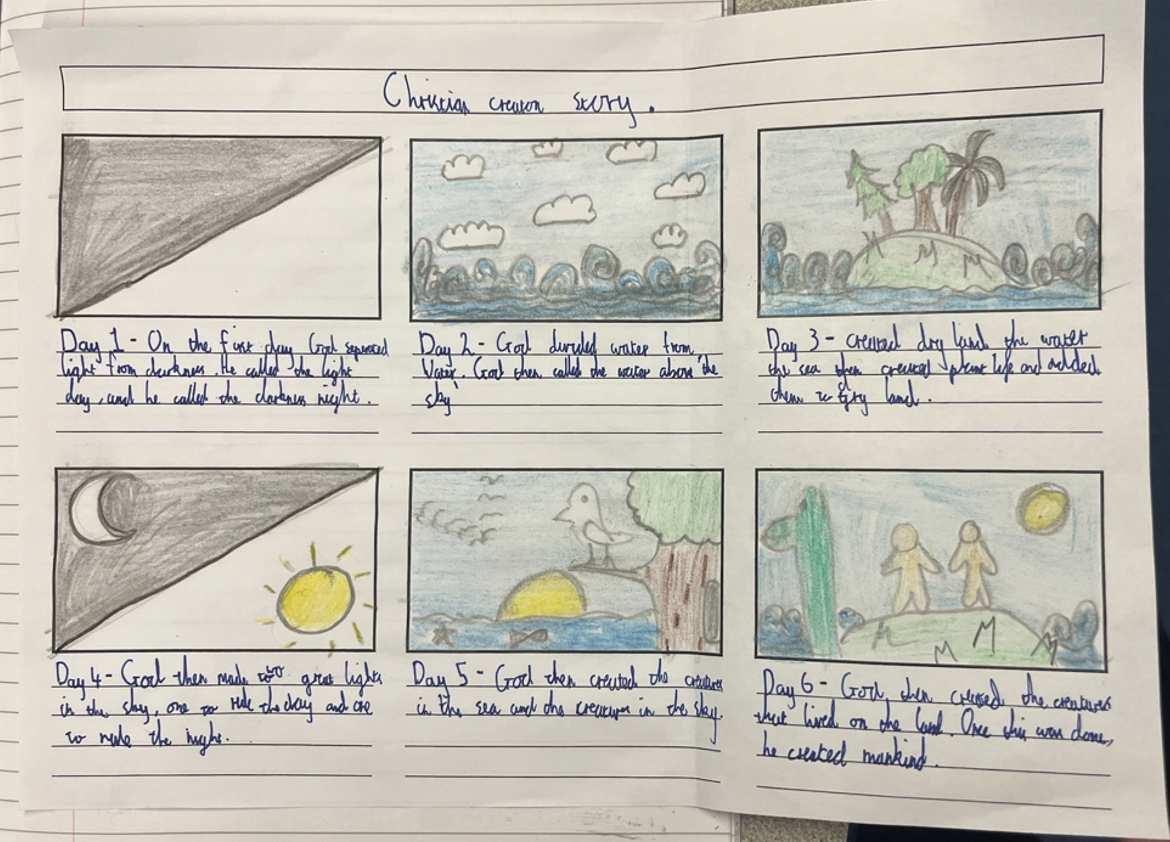 Christian creation story.
Day 1 - On the first day God seperated
light from darkness. He called the light
day, and he called the darkness night.
Day 2 - God divided water from
Water. God then called the water above 'the
sky'
Day 3 - created dry land the water
the sea then created plant life and added
them to dry land.
Day 4 - God then made two great lights
in the sky, one to rule the day and one
to rule the night.
Day 5 - God then created the creatures
in the sea and the creatures in the sky.
Day 6 - God then created the creatures
that lived on the land. Once this was done,
he created mankind.